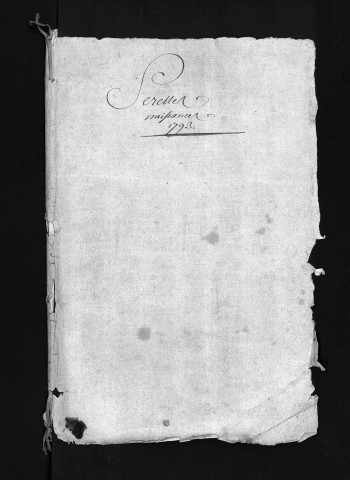 Serettes
naissances
1793